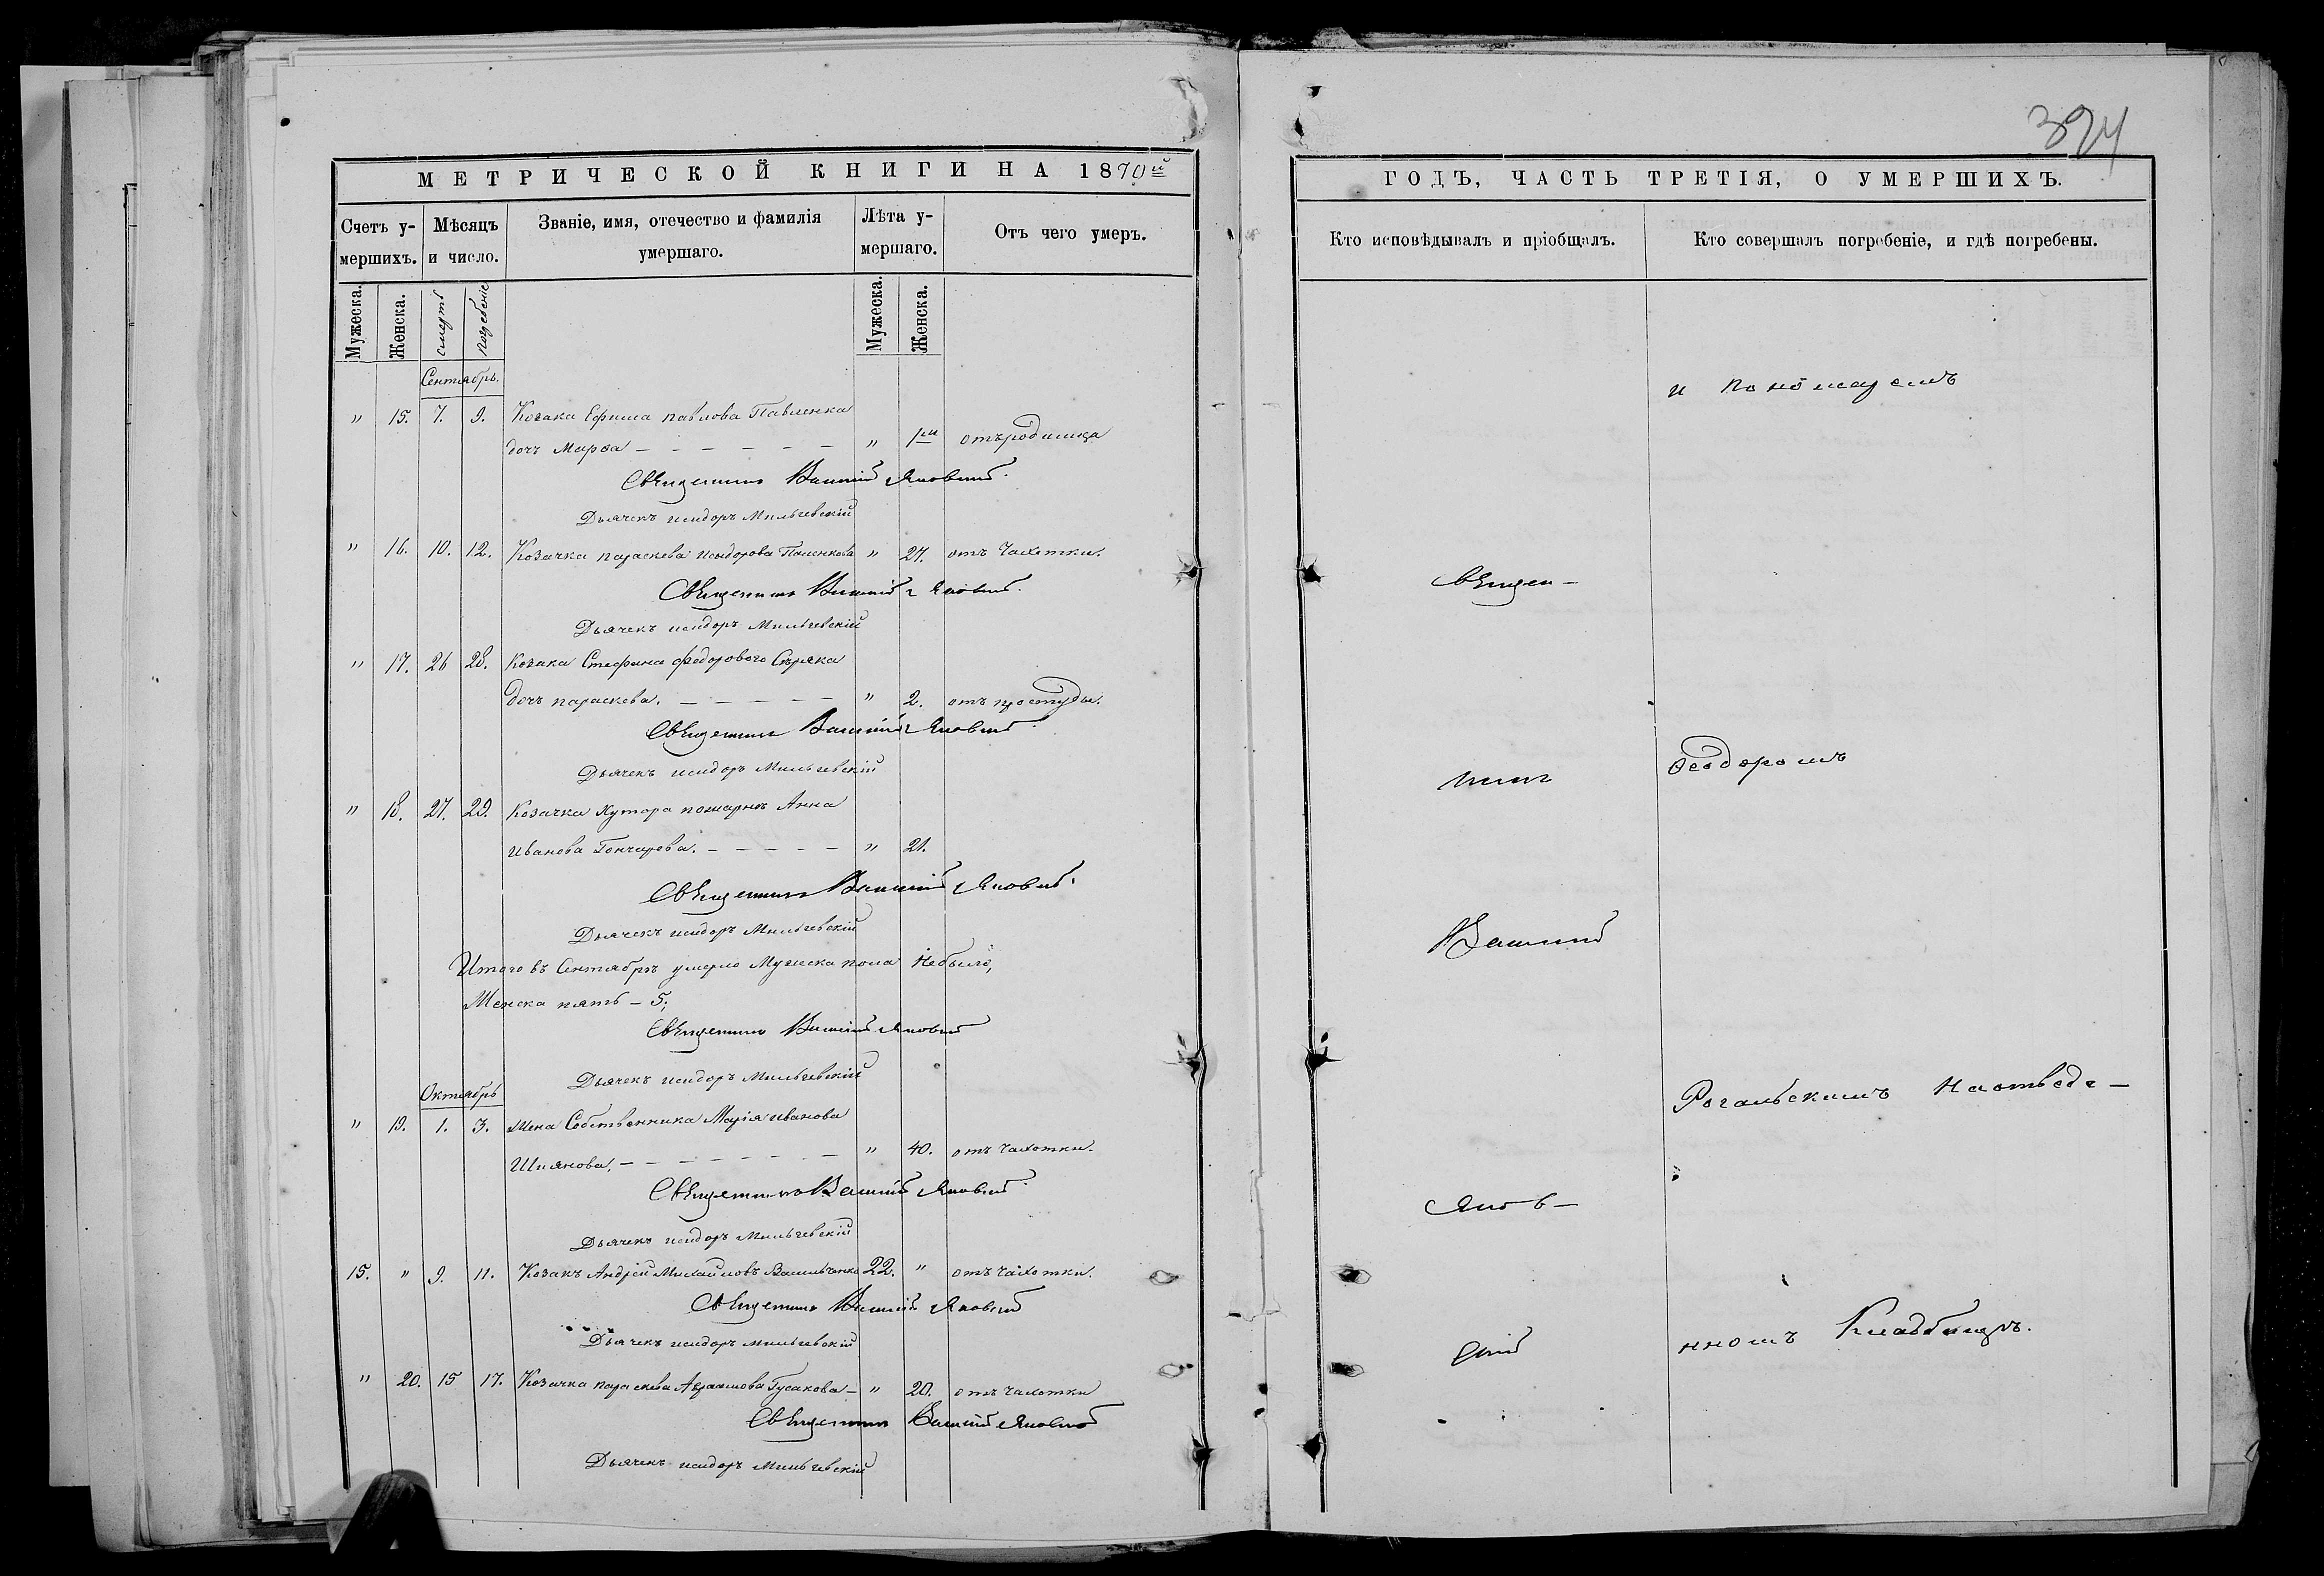 МЕТРИЧЕСКОЙ КНИГИ НА 1870й
Счетъ у-мершихъ.
Мѣсяцъ и число.
Званіе, имя, отечество и фамилія умершаго.
Лѣта у-мершаго.
Отъ чего умеръ.
Мужеска. Женска. смерть погребеніе Мужеска. Женска.
Сентябрь.
" 15. 7. 9. Козака Ефима павлова Павленка
дочь Марѳа — — — — — — " 1го отъ родимца
Священникъ Василій Яновскій
Дьячекъ исидоръ Мильчевскій
" 16. 10. 12. Козачка параскева исидорова " 27. отъ Чахотки.
Священникъ Василій Яновскій.
Дьячекъ исидоръ Мильчевскій
" 17. 26 28. Козака Стефана федорового Сѣряка
дочь параскева. — — — — — " 2. отъ простуды.
Священникъ Василій Яновскій
Дьячекъ исидоръ Мильчевскій
" 18. 27. 29. Козачка Хутора Анна
иванова Гончарева. — — — — — " 21.
Священникъ Василій Яновскій.
Дьячекъ исидоръ Мильчевскій
Итого въ Сентябрѣ умерло Мужеска пола Небыло,
Женска пять — 5;
Священникъ Василій Яновскій
Дьячекъ исидоръ Мильчевскій
Октябрь
" 19. 1. 3. Жена Собственника Марія иванова
Шиянова. — — — — — — — " 40. отъ чахотки.
Священникъ Василій Яновскій
Дьячекъ исидоръ Мильчевскій
15. " 9. 11. Козакъ Андрій Михайловъ Васильченко 22. " отъ чахотки.
Священникъ Василій Яновскій
Дьячекъ исидоръ мильчевскій
" 20. 15 17. Козачка параскева Авраамова Гусакова — " 20. отъ чахотки
Священникъ Василій Яновскій
Дьячекъ исидоръ мильчевскій
394
ГОДЪ, ЧАСТЬ ТРЕТІЯ, О УМЕРШИХЪ.
Кто исповѣдывалъ и пріобщалъ.
Кто совершалъ погребеніе, и гдѣ погребены.
и Пономаремъ
Священ-
никъ
Ѳеодоромъ
Василій
Рогальскимъ На отведе-
Янов-
скій
нномъ Кладбищѣ.